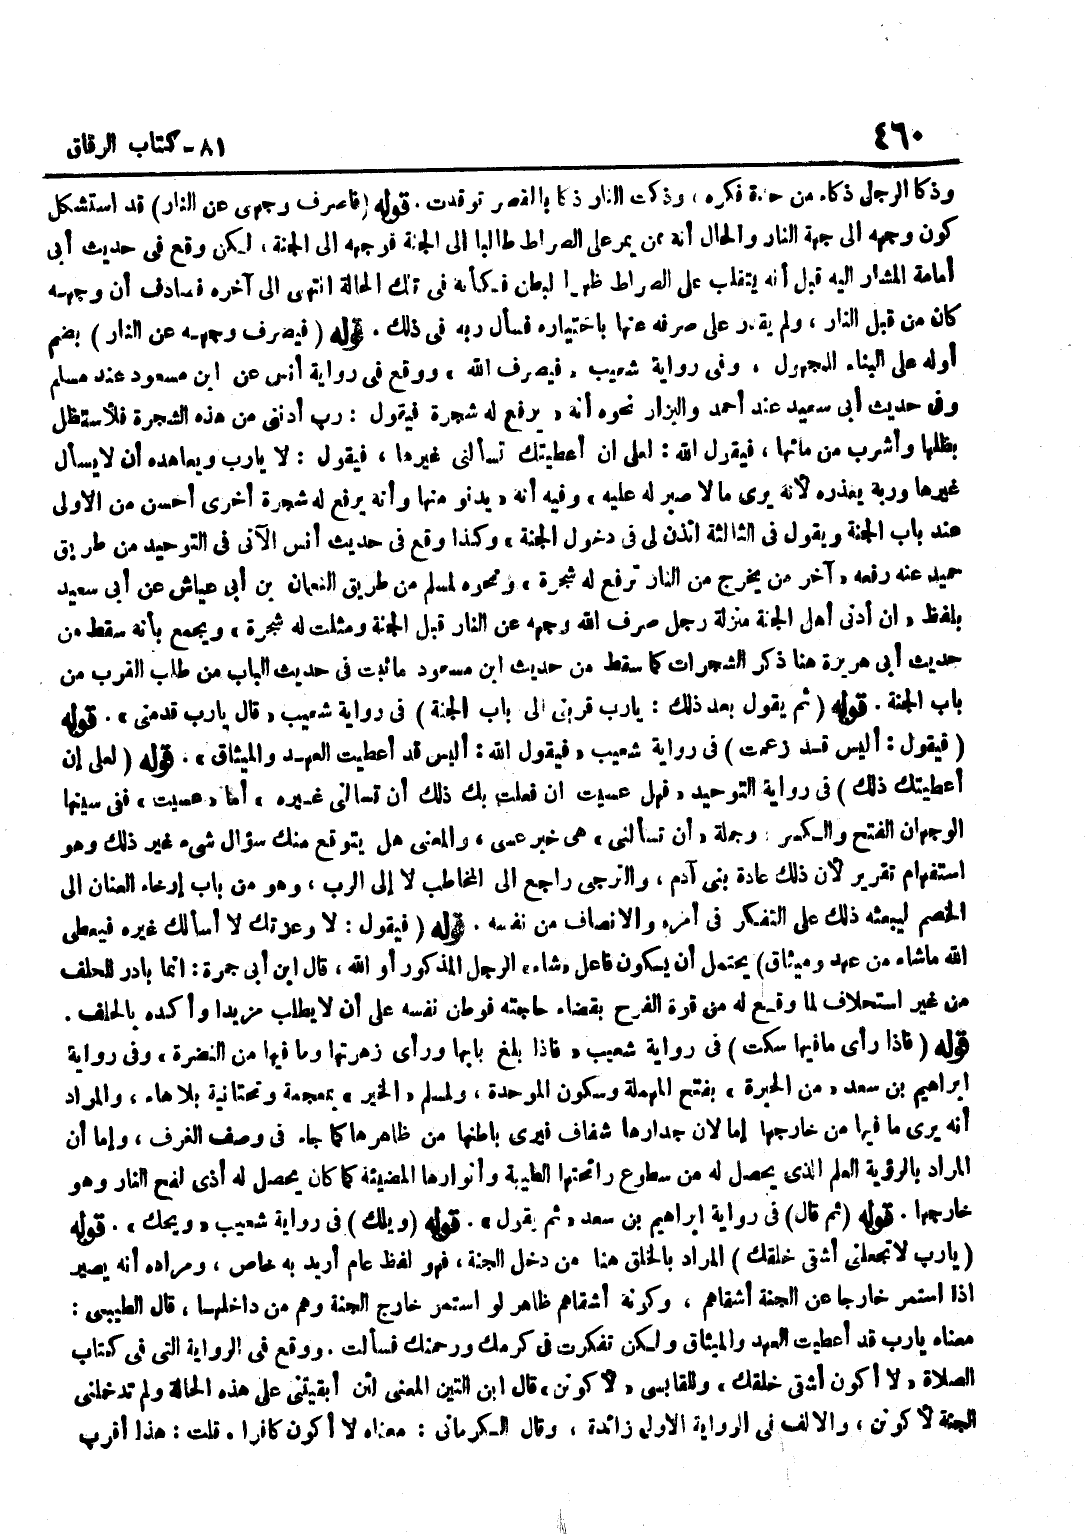 ٤٦٠
٨١ - كتاب الرقاق
وذكا الرجل ذكاء من حدة فكره ، وذكت النار ذكا بالقصر توقدت . قوله (فاصرف وجهى عن النار) قد استشكل
كون وجهه الى جهة النار والحال أنه ممن يمر على الصراط طالبا الى الجنة فوجهه الى الجنة ، لكن وقع فى حديث أبى
أمامة المشار اليه قبل أنه يتقلب على الصراط ظهرا لبطن فكأنه فى تلك الحالة انتهى الى آخره فصادف أن وجهه
كان من قبل النار ، ولم يقدر على صرفه عنها باختياره فسأل ربه فى ذلك . قوله ( فيصرف وجهه عن النار ) بضم
أوله على البناء للمجهول ، وفى رواية شعيب « فيصرف الله » ووقع فى رواية أنس عن ابن مسعود عند مسلم
وفى حديث أبى سعيد عند أحمد والبزار نحوه أنه « يرفع له شجرة فيقول : رب أدننى من هذه الشجرة فلأستظل
بظلها وأشرب من مائها ، فيقول الله : لعلى ان أعطيتك تسألنى غيرها ، فيقول : لا يارب ويعاهده أن لا يسأل
غيرها وربه يعذره لأنه يرى مالا صبر له عليه » وفيه أنه « يدنو منها وأنه يرفع له شجرة أخرى أحسن من الاولى
عند باب الجنة ويقول فى الثالثة ائذن لى فى دخول الجنة » وكذا وقع فى حديث أنس الآتى فى التوحيد من طريق
حميد عنه رفعه « آخر من يخرج من النار ترفع له شجرة » ونحوه لمسلم من طريق النعمان بن أبى عياش عن أبى سعيد
بلفظ « ان أدنى أهل الجنة منزلة رجل صرف الله وجهه عن النار قبل الجنة ومثلت له شجرة » ويجمع بأنه سقط من
حديث أبى هريرة هنا ذكر الشجرات كما سقط من حديث ابن مسعود ماثبت فى حديث الباب من طلب القرب من
باب الجنة . قوله ( ثم يقول بعد ذلك : يارب قربنى الى باب الجنة ) فى رواية شعيب « قال يارب قدمنى » . قوله
( فيقول : أليس قد زعمت ) فى رواية شعيب « فيقول الله : أليس قد أعطيت العهد والميثاق » . قوله ( لعلى إن
أعطيتك ذلك ) فى رواية التوحيد « فهل عسيت ان فعلت بك ذلك أن تسألنى غيره » أما « عسيت » ففى سينها
الوجهان الفتح والكسر ، وجملة « أن تسألنى » هى خبر عسى ، والمعنى هل يتوقع منك سؤال شىء غير ذلك وهو
استفهام تقرير لأن ذلك عادة بنى آدم ، والترجى راجع الى المخاطب لا إلى الرب ، وهو من باب إرخاء العنان الى
الخصم ليبعثه ذلك على التفكر فى أمره والانصاف من نفسه . قوله ( فيقول : لا وعزتك لا أسألك غيره فيعطى
الله ماشاء من عهد وميثاق) يحتمل أن يكون فاعل «شاء» الرجل المذكور أو الله ، قال ابن أبى جمرة : انما بادر للحلف
من غير استحلاف لما وقع له من قوة الفرح بقضاء حاجته فوطن نفسه على أن لا يطلب مزيدا وأكده بالحلف .
قوله ( فاذا رأى مافيها سكت ) فى رواية شعيب « فاذا بلغ بابها ورأى زهرتها وما فيها من النضرة » وفى رواية
ابراهيم بن سعد « من الحبرة » بفتح المهملة وسكون الموحدة ، ولمسلم « الخير » بمعجمة وتحتانية بلا هاء ، والمراد
أنه يرى ما فيها من خارجها إما لان جدارها شفاف فيرى باطنها من ظاهرها كما جاء فى وصف الغرف ، وإما أن
المراد بالرؤية العلم الذى يحصل له من سطوع رائحتها الطيبة وأنوارها المضيئة كما كان يحصل له أذى لفح النار وهو
خارجها . قوله (ثم قال) فى رواية ابراهيم بن سعد « ثم يقول » . قوله (ويلك) فى رواية شعيب « ويحك » . قوله
( يارب لا تجعلنى أشقى خلقك ) المراد بالخلق هنا من دخل الجنة ، فهو لفظ عام أريد به خاص ، ومراده أنه يصير
اذا استمر خارجا عن الجنة أشقاهم ، وكونه أشقاهم ظاهر لو استمر خارج الجنة وهم من داخلها ، قال الطيبى :
معناه يارب قد أعطيت العهد والميثاق ولكن تفكرت فى كرمك ورحمتك فسألت . ووقع فى الرواية التى فى كتاب
الصلاة « لا أكون أشقى خلقك » وللقابسى « لأكونن » قال ابن التين المعنى لئن أبقيتنى على هذه الحالة ولم تدخلنى
الجنة لأكونن ، والالف فى الرواية الاولى زائدة ، وقال الكرمانى : معناه لا أكون كافرا . قلت : هذا أقرب